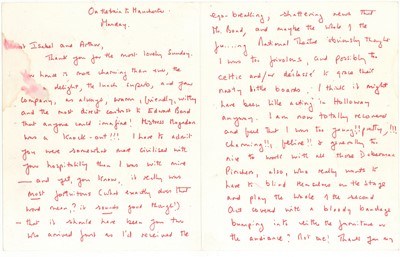 On the train to Manchester
Monday.
Isabel and Arthur,
Thank you for the most lovely Sunday.
house is more charming than ever, the
a delight, the lunch superb, and your
company, as always, warm, friendly, witty
and the most direct contrast to Edward Bond
that anyone could imagine! Mistress
was a knock-out!!! I have to admit
you were somewhat more civilised with
your hospitality than I was with mine
— and yet, you know, it really was
most fortuitous (what exactly does that
word mean,? it sounds good though!)
— that it should have been you two
who arrived just as I'd received the
ego-breaking, shattering news that
the Bond, and maybe the whole of the
fu....ing National Theatre obviously thought
I was too frivolous, and possibly too
celtic and/or déclassé to grace their
nasty little boards. I think it might
have been like acting in Holloway
anyway. I am now totally recovered
and feel that I was too young!! pretty!!!
charming!!, feline!! & generally too
nice to work with all those Doberman
Pinchers, also, who really wants to
have to blind themselves on the stage
and play the whole of the second
Act covered with a bloody bandage
bumping into either the furniture or
the audience? Not me! Thank you my